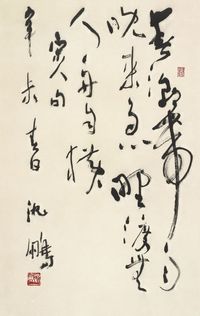 春潮带雨
晚来急野渡无
人舟自横
唐人句
辛未春日
沈鹏